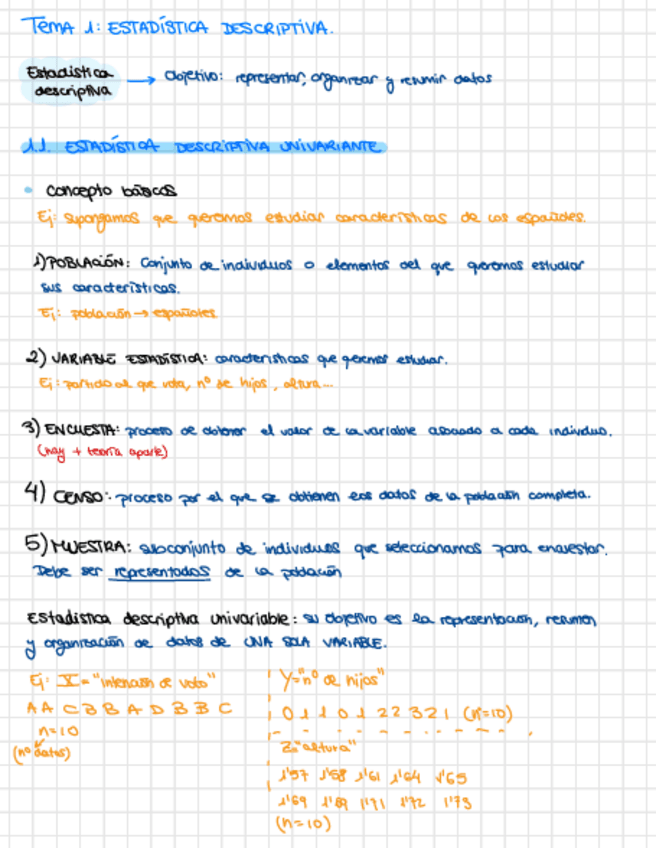 TEMA 1: ESTADÍSTICA DESCRIPTIVA.
Estadística descriptiva → Objetivo: representar, organizar y resumir datos
1.1. ESTADÍSTICA DESCRIPTIVA UNIVARIANTE
• Concepto básicos
Ej: supongamos que queremos estudiar características de los españoles.
1) POBLACIÓN: Conjunto de individuos o elementos del que queremos estudiar
sus características.
Ej: población → españoles
2) VARIABLE ESTADÍSTICA: características que queremos estudiar.
Ej: partido al que vota, nº de hijos, altura...
3) ENCUESTA: proceso de obtener el valor de la variable asociado a cada individuo.
(hay + teoría aparte)
4) CENSO: proceso por el que se obtienen los datos de la población completa.
5) MUESTRA: subconjunto de individuos que seleccionamos para encuestar.
Debe ser representados de la población
Estadística descriptiva univariable: su objetivo es la representación, resumen
y organización de datos de UNA SOLA VARIABLE.
Ej: X = "intención de voto"
A A C B B A D B B C
n=10
(nº datos)
Y="nº de hijos"
0 1 1 0 1 2 2 3 2 1 (n=10)
Z="altura"
1'57 1'58 1'61 1'64 1'65
1'69 1'71 1'72 1'73
(n=10)